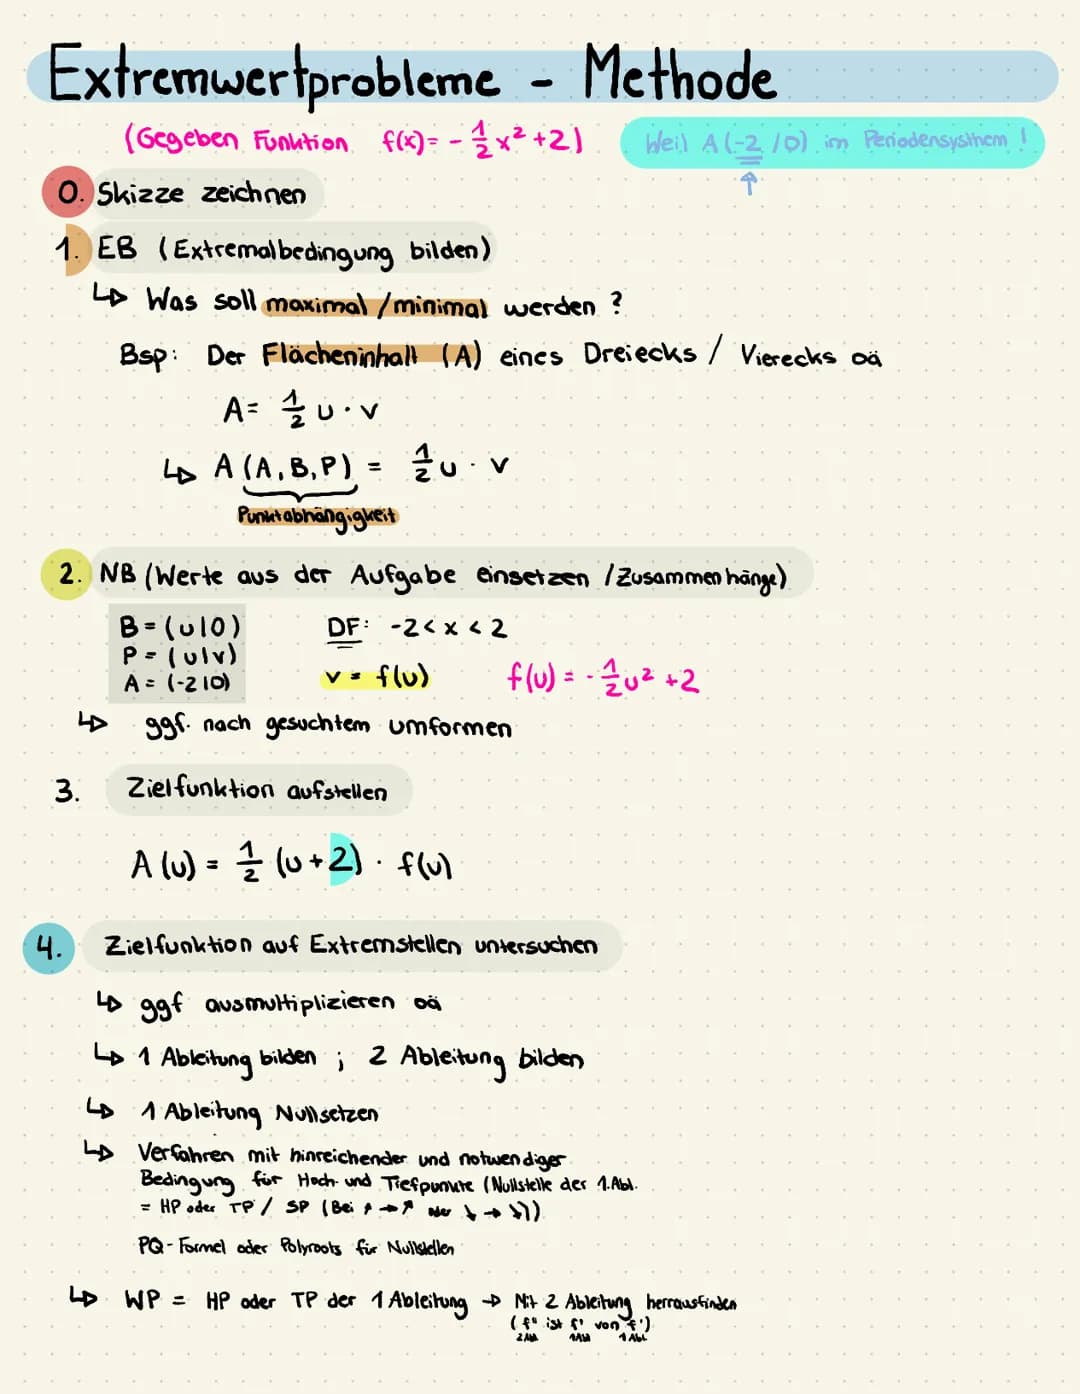 Extremwertprobleme - Methode
(Gegeben Funktion f(x)= - 1/2 x² +2)
Weil A(-2 /0) im Periodensysthem !
0. Skizze zeichnen
1. EB (Extremalbedingung bilden)
↳ Was soll maximal /minimal werden ?
Bsp: Der Flächeninhalt (A) eines Dreiecks / Vierecks oä
A= 1/2 u · v
↳ A (A, B, P) = 1/2 u · v
Punktabhängigkeit
2. NB (Werte aus der Aufgabe einsetzen /Zusammenhänge)
B = (u|0) DF: -2< x < 2
P = (u|v)
A = (-2|0) v = f(u) f(u) = - 1/2 u² +2
↳ ggf. nach gesuchtem umformen
3. Zielfunktion aufstellen
A (u) = 1/2 (u+2) · f(u)
4. Zielfunktion auf Extremstellen untersuchen
↳ ggf ausmultiplizieren oä
↳ 1 Ableitung bilden ; 2 Ableitung bilden
↳ 1 Ableitung Nullsetzen
↳ Verfahren mit hinreichender und notwendiger
Bedingung für Hoch- und Tiefpunkte (Nullstelle der 1.Abl.
= HP oder TP / SP (Bei ↗ → ↗ oder ↘ → ↘))
PQ - Formel oder Polyroots für Nullstellen
↳ WP = HP oder TP der 1 Ableitung → Mit 2 Ableitung herrausfinden
(f" ist f' von f')
2 Abl 1Abl 1 Abl